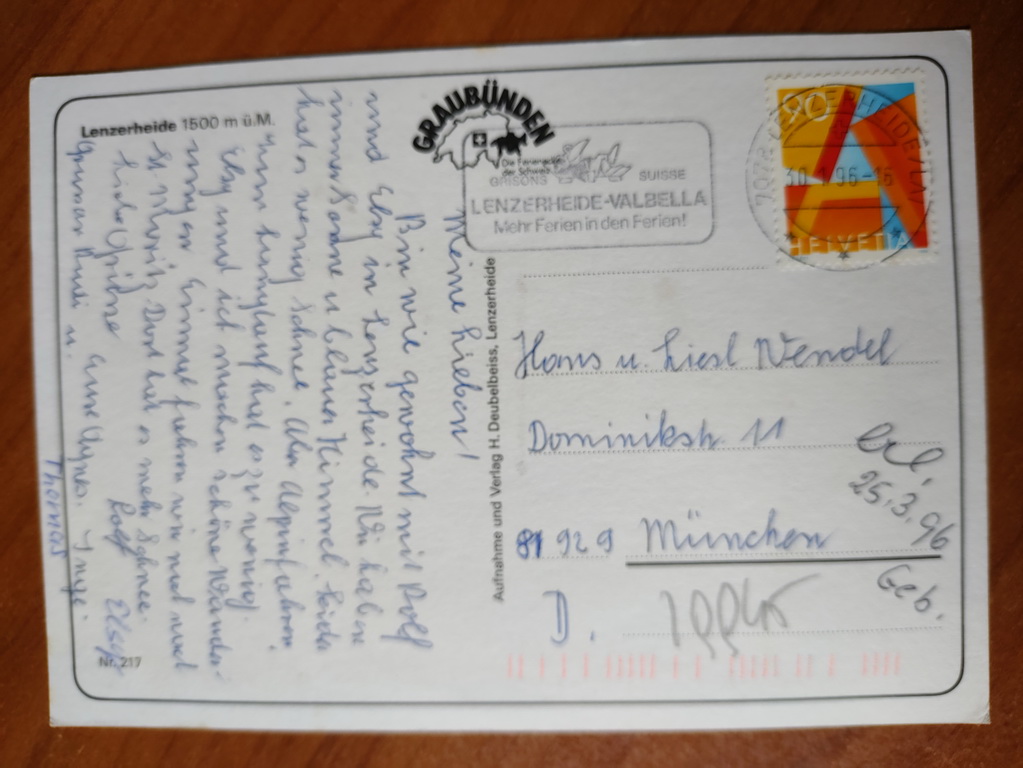 Lenzerheide 1500 m ü.M.
Meine Lieben!
Bin wie gewohnt mit Rolf
und Elsy in Lenzerheide. Wir haben
immer Sonne u. blauen Himmel, leider
hat es wenig Schnee. Also Alpinfahren,
zum Langlauf hat es zu wenig.
Elsy und ich machen schöne Wander-
ungen. Einmal fuhren wir mal nach
St. Moritz. Dort hat es mehr Schnee.
Liebe Grüsse
Rolf Elsy
Thomas
Nr. 217
Aufnahme und Verlag H. Deubelbeiss, Lenzerheide
GRAUBÜNDEN
Die Ferienecke
der Schweiz
GRISONS SUISSE
LENZERHEIDE-VALBELLA
Mehr Ferien in den Ferien!
7078 LENZERHEIDE/LAI
96-16
90
A
HELVETIA
Hans u. Liesl Wendel
Dominikstr. 11
81929 München
D.
erl.
25.3.96
Geb.